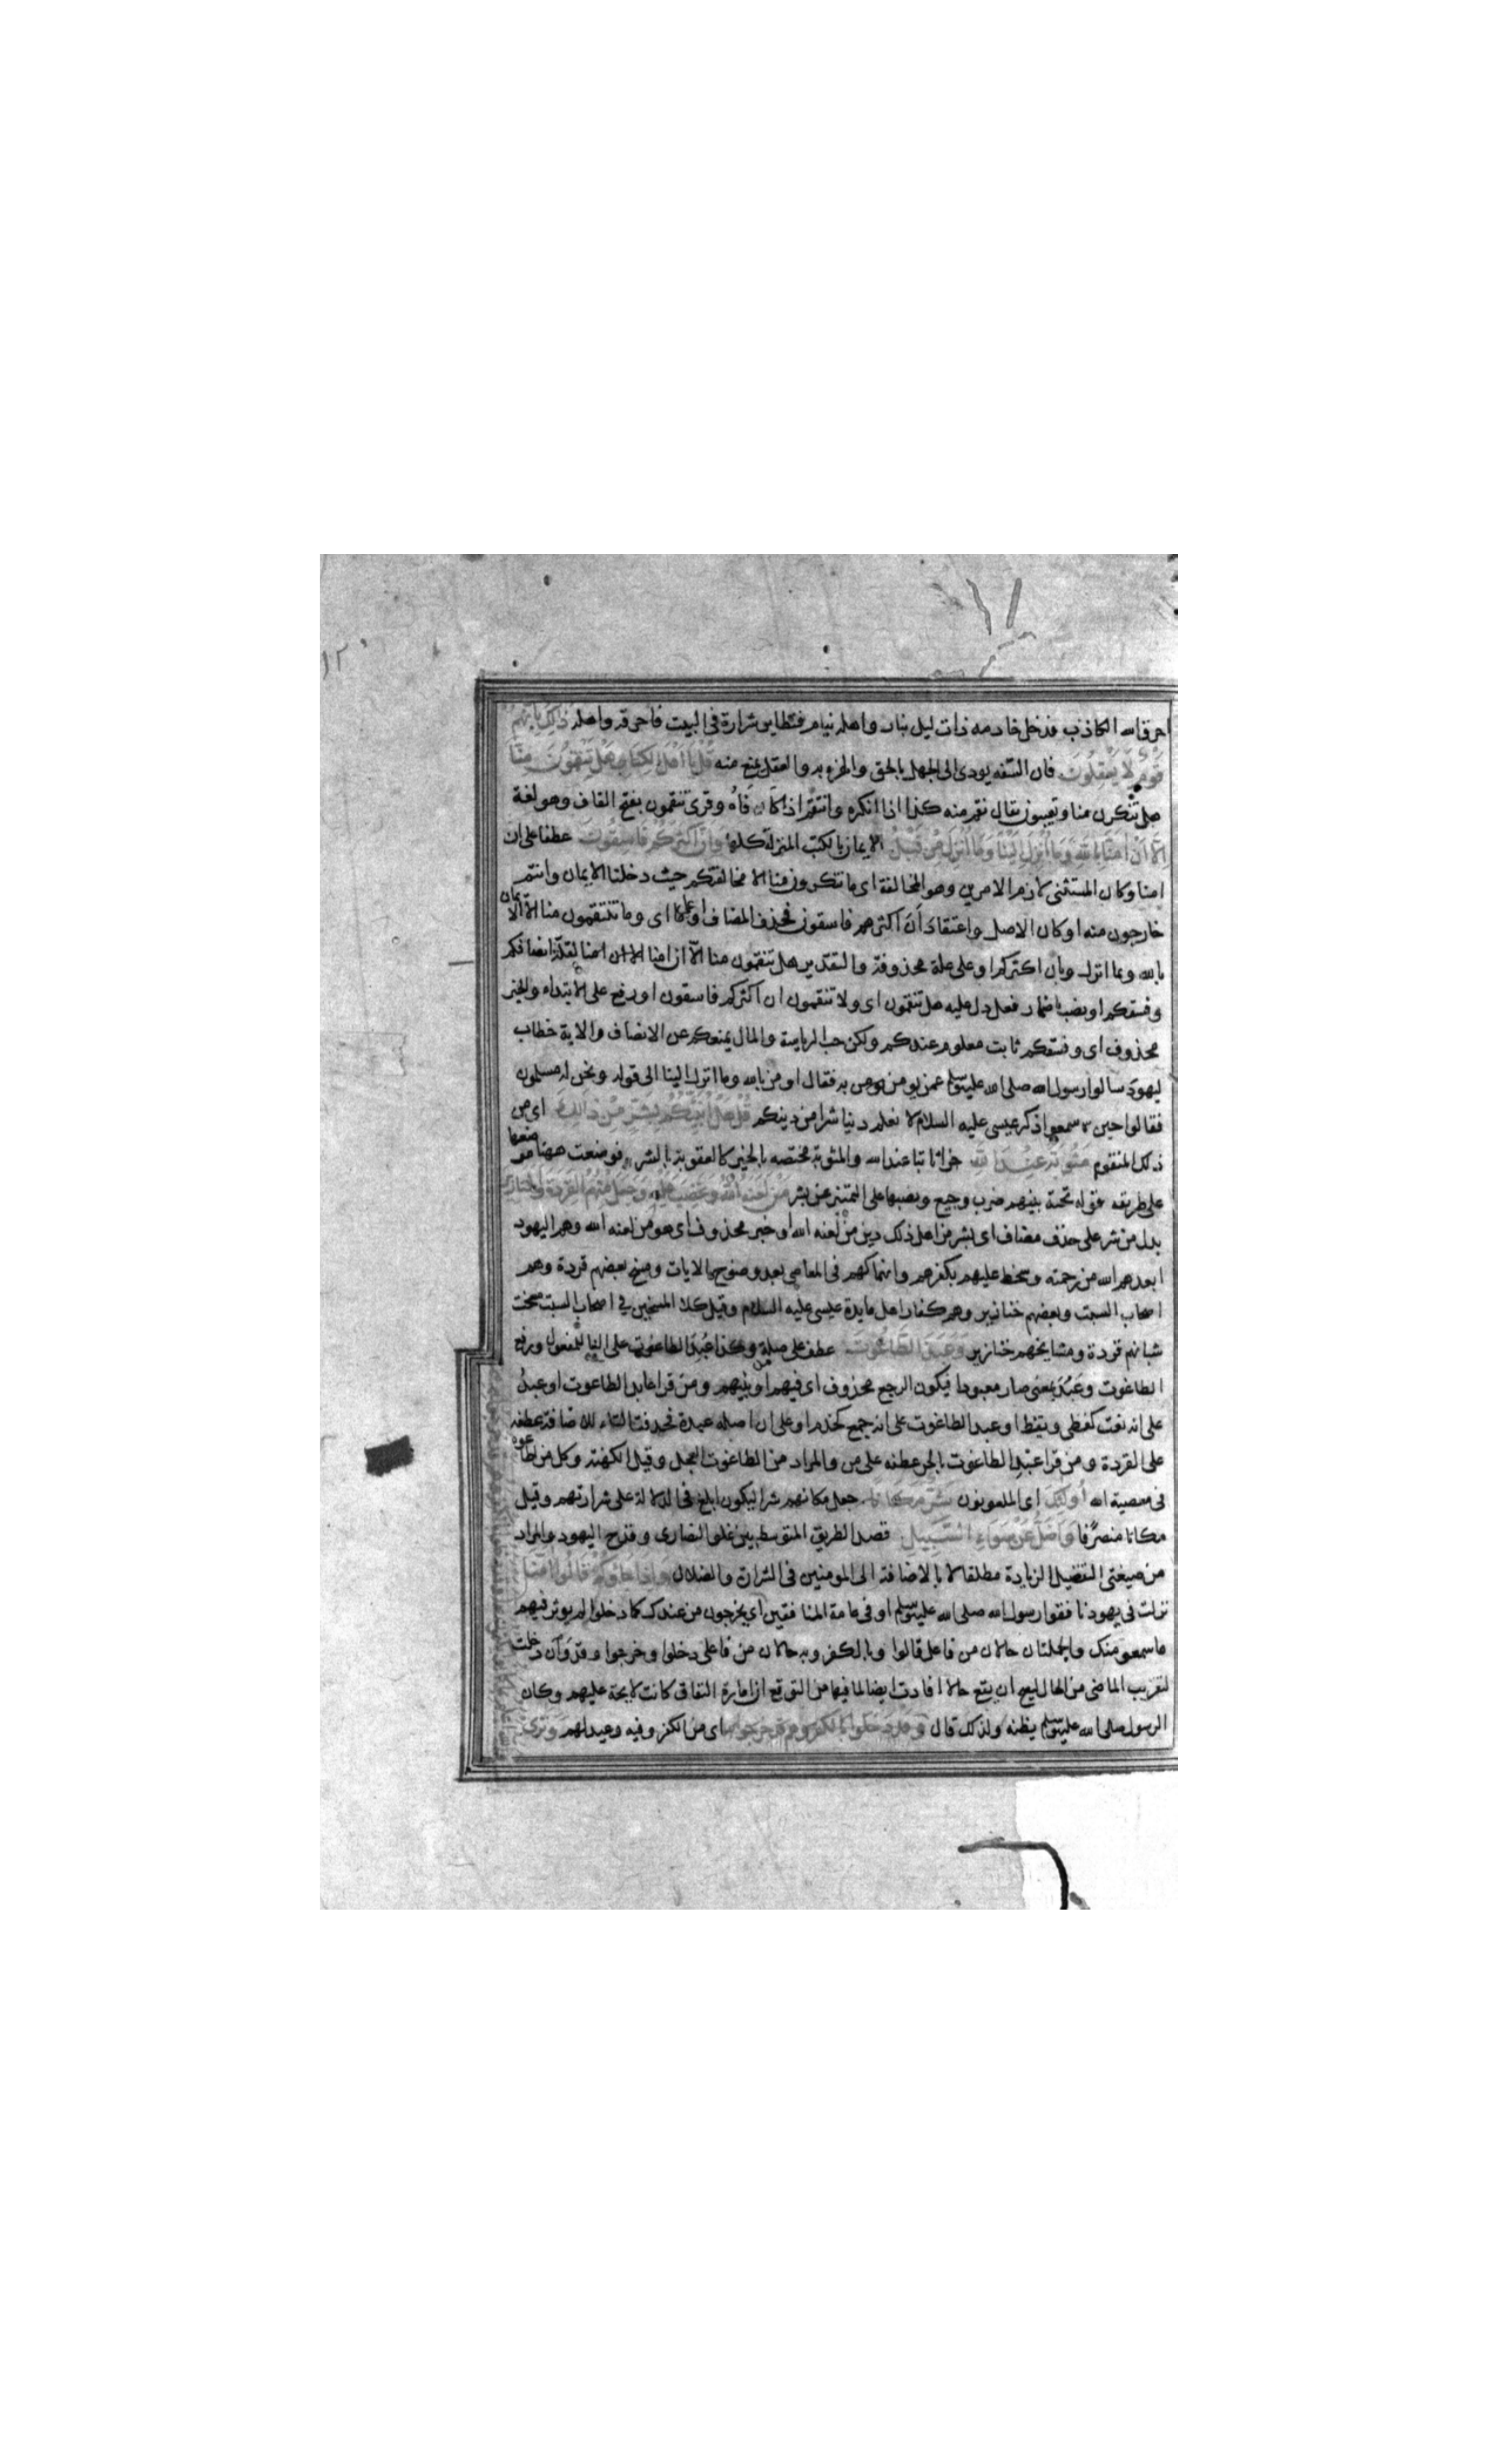 احرق الله الكاذب فدخل خادمه ذات ليل بنار واهله نيام فتطاير شرارة فى البيت فاحرقه واهله ذلك بانهم
قَوْمٌ لَا يَعْقِلُونَ فان السفه يودى الى الجهل بالحق والهزء به والعقل يمنع منه قُلْ يَا اَهْلَ الكِتَابِ هَلْ تَنْقِمُونَ مِنَّا
هل تنكرن منا وتعيبون يقال نقم منه كذا اذا انكره وانتقم اذا كافاه وقرى تنقمون بفتح القاف وهو لغة
اِلَّا اَنْ اٰمَنَّا بِاللهِ وَمَا اُنْزِلَ اِلَيْنَا وَمَا اُنْزِلَ مِنْ قَبْلُ الايمان بالكتب المنزلة كلها وَاَنَّ اَكْثَرَكُمْ فَاسِقُونَ عطف على ان
امنا وكان المستثنى لازم الامرين وهو المخالفة اى ما تنكرون منا الا مخالفتكم حيث دخلنا الايمان وانتم
خارجون منه او كان الاصل واعتقاد اَنّ اكثرهم فاسقون فحذف المضاف او على ما اى وما تنقمون منا الا الايمان
بالله وبما انزل وبان اكثركم او على علة محذوفة والتقدير هل تنقمون منا الا ان امنا لقلة انصافكم
وفسقكم او نصب باضمار فعل دل عليه هل تنقمون اى ولا تنقمون ان اكثركم فاسقون او رفع على الابتداء والخبر
محذوف اى وفسقكم ثابت معلوم عندكم ولكن حب الرياسة والمال يمنعكم عن الانصاف والاية خطاب
ليهود سالوا رسول الله صلى الله عليه وسلم عمن يومن به فقال اومن بالله وما انزل الينا الى قوله ونحن له مسلمون
فقالوا حين سمعوا ذكر عيسى عليه السلام لا نعلم دينا شرا من دينكم قُلْ هَلْ اُنَبِّئُكُمْ بِشَرٍّ مِنْ ذَالِكَ اى من
ذلك المنقوم مَثُوبَةً عِنْدَ اللهِ جزاثابتا عند الله والمثوبة مختصه بالخير كالعقوبة بالشر فوضعت ههنا موضعها
على طريقه قوله تحية بينهم ضرب وجيع ونصبها على التمييز عن بشر مَنْ لَعَنَهُ اللهُ وَغَضِبَ عَلَيْهِ وَجَعَلَ مِنْهُمُ القِرَدَةَ وَالخَنَازِيرَ
بدل من شر على حذف مضاف اى بشر من اهل ذلك دين من لعنه الله او خبر محذوف اى هو من لعنه الله وهم اليهود
ابعدهم الله من رحمته وسخط عليهم بكفرهم وانهماكهم فى المعاصى بعد وضوح الايات ومسخ بعضهم قردة وهم
اصحاب السبت وبعضهم خنازير وهم كفار اهل مايدة عيسى عليه السلام وقيل كلا المسخين فى اصحاب السبت مسخت
شبانهم قردة ومشايخهم خنازير وَعَبَدَ الطَّاغُوتَ عطف على صلة من وكذا عُبِدَ الطاغوت على البنا للمفعول ورفع
الطاغوت وعَبُدَ بمعنى صار معبودا فيكون الراجع محذوف اى فيهم او بينهم ومن قرا عابد الطاغوت او عبد
على انه نعت كفطن ويقظ او عبد الطاغوت على انه جمع كخدم او على ان اصله عبدة فحذفت التاء للاضافة عطفه
على القردة ومن قرا عبد الطاغوت بالجر عطفه على من والمراد من الطاغوت العجل وقيل الكهنة وكل من اطاعوه
فى معصية الله اُولَئِكَ اى الملعونون شَرٌّ مَكَانًا جعل مكانهم شرا ليكون ابلغ فى الدلالة على شرارتهم وقيل
مكانا منصرفا وَاَضَلُّ عَنْ سَوَاءِ السَّبِيلِ قصد الطريق المتوسط بين غلو النصارى وقدح اليهود والمراد
من صيغتى التفضيل الزيادة مطلقا لا بالاضافة الى المومنين فى الشرارة والضلال وَاِذَا جَاؤُكُمْ قَالُوا اٰمَنَّا
نزلت فى يهود نافقوا رسول الله صلى الله عليه وسلم او فى عامة المنافقين اى يخرجون من عندك كما دخلوا لم يوثر فيهم
ما سمعو منك والجملتان حالان من فاعل قالوا وبالكفر وبه حالان من فاعلى دخلوا وخرجوا وقد وان دخلت
لتقريب الماضى من الحال ليصح ان يقع حالا افادت ايضا لما فيها من التوقع ان امارة النفاق كانت لايحة عليهم وكان
الرسول صلى الله عليه وسلم يظنه ولذلك قال وَقَدْ دَخَلُوا بِالكُفْرِ وَهُمْ قَدْ خَرَجُوا بِهِ اى من الكفر وفيه وعيد لهم وَتَرَى